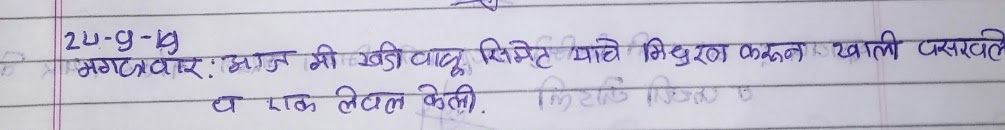 24-9-19
मगळवार: आज मी खडी वाळू सिमेट याचे मिश्रण करून खाली पसरवले
व एक लेवल केली.